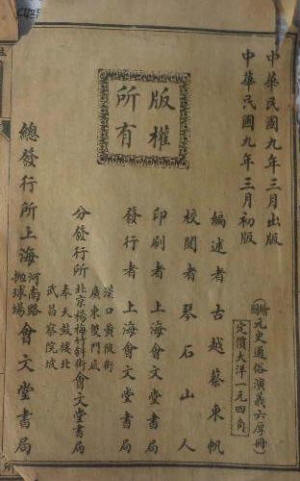 中華民國九年三月出版
中華民國九年三月初版
繪圖元史通俗演義六厚冊
定價大洋一元四角
編述者古越蔡東帆
校閱者琴石山人
版權所有
印刷者上海會文堂書局
發行者上海會文堂書局
分發行所
漢口黃陂街
廣東雙門底
北京楊梅竹斜街會文堂書局
奉天鼓樓北
武昌察院坡
總發行所上海河南路拋球場會文堂書局